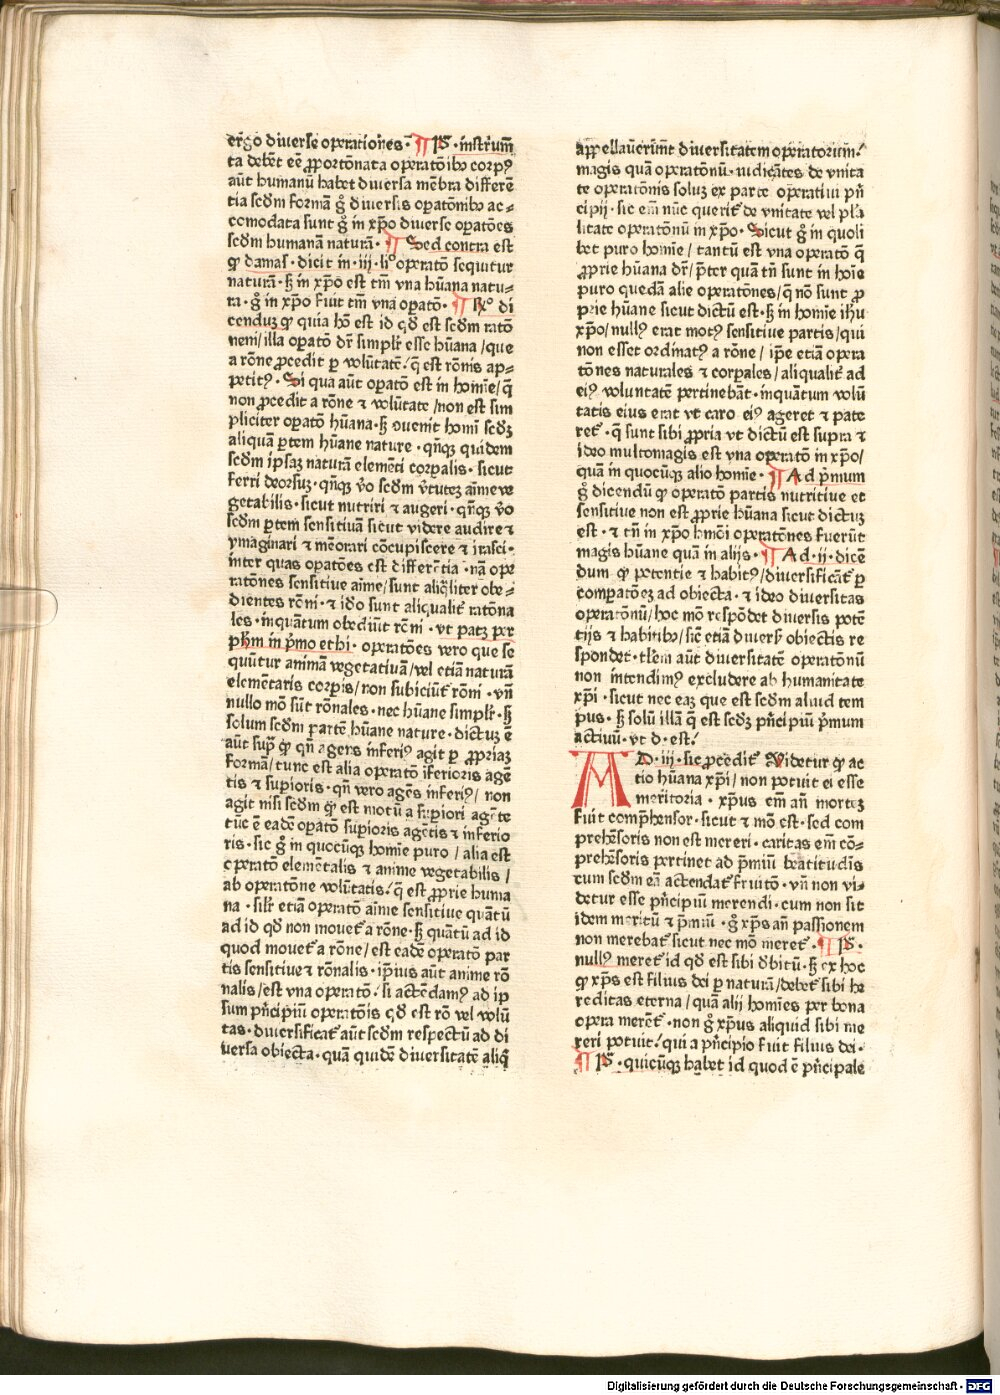 erḡo diuerse operatiōnes · ¶ Pᵉ͞ · instrūm̄
ta debēt eē ꝓportōnata operatōibꝰ corpꝰ
aūt humanū habet diuersa mēbra differē
tia scd̄m formā ḡ diuersis oꝑatōnibꝰ ac⸗
comodata sunt ḡ in xp̄o diuerse oꝑatōes
scd̄m humanā naturā · ¶ Sed contra est
ꝙ damaſ · dicit in · iij · liᵒ operatō sequitur
naturā · ꝫ in xp̄o est tm̄ vna hūana natu⸗
ra · ḡ in xp̄o fuit tm̄ vna oꝑatō · ¶ Rᵒ di
cenduꝫ ꝙ quia hō est id qd̄ est scd̄m ratō
nem / illa oꝑatō dr̄ simplr̄ esse hūana / que
a rōne ꝓcedit ꝑ volūtatē / q̄ est rōnis ap⸗
petitꝰ · Si qua aūt oꝑatō est in homīe / q̄
non ꝓcedit a rōne ⁊ volūtate / non est sim
pliciter oꝑatō hūana · ꝫ ꝯuenit homī scd̄ꝫ
aliquā ꝑtem hūane nature · qn̄qꝫ quidem
scd̄m ipsaꝫ naturā elemēti corꝑalis · sicut
ferri deorsuꝫ · qn̄qꝫ v̄o scd̄m v̄tuteꝫ aīme ve
getabilis · sicut nutriri ⁊ augeri · qn̄qꝫ v̄o
scd̄m ꝑtem sensitiuā sicut videre audire ⁊
ymaginari ⁊ mēorari cōcupiscere ⁊ irasci ·
inter quas oꝑatōes est differētia · nā oꝑe
ratōnes sensitiue aīme / sunt aliq̄liter obe⸗
dientes rōni · ⁊ idō sunt aliqualit̄ ratōna
les · inquantum obediūt rōni · vt patꝫ per
ph̄m in p̄mo ethi · operatōes vero que se
quūtur animā vegetatiuā / vel etiā naturā
elemētaris corꝑis / non subiciūt̄ rōni · vn̄
nullo mō sūt rōnales · nec hūane simplr̄ · ꝫ
solum scd̄m partē hūane nature · dictuꝫ ē
aūt supͣ ꝙ qn̄ agens inferiꝰ agit ꝑ ꝓpriaꝫ
formā / tunc est alia operatō īferioris agē
tis ⁊ suꝑioris · qn̄ vero agēs inferiꝰ / non
agit nisi scd̄m ꝙ est motū a suꝑiori agēte
tūc ē eadē oꝑatō suꝑioris agētis ⁊ inferio
ris · sic ḡ in quocūqꝫ homīe puro / alia est
oꝑeratō elemētalis ⁊ anime vegetabilis /
ab operatōne volūtatis / q̄ est ꝓprie huma
na · silr̄ etiā operatō aīme sensitiue quātū
ad id qd̄ non mouet̄ a rōne · ꝫ quātū ad id
quod mouet̄ a rōne / est eadē operatō par
tis sensitiue ⁊ rōnalis · ip̄ius aūt anime rō
nalis / est vna operatō · si actēdamꝰ ad ip
sum pn̄cipiū operatōis qd̄ est rō vel volū
tas · diuersificat̄ aūt scd̄m respectū ad di
uersa obiecta · quā quidē diuersitatē aliq̄
appellauērūnt diuersitatem operatorum /
magis quā operatōnū · iudicātes de vnita
te operatōnis soluꝫ ex parte operatiui pn̄
cipij · sic em̄ nūc querit̄ de vnitate vel plͣa
litate operatōnū in xp̄o · Sicut ḡ in quoli
bet puro homīe / tantū est vna operatō q̄
ꝓprie hūana dr̄ / p̄ter quā tn̄ sunt in hoīe
puro quedā alie operatōnes / q̄ nō sunt ꝓ
prie hūane sicut dictū est · ꝫ in homīe ih̄u
xp̄o / nullꝰ erat motꝰ sensitiue partis / qui
non esset ordinatꝰ a rōne / ip̄e etiā opera
tōnes naturales ⁊ corꝑales / aliqualit̄ ad
eiꝰ voluntatē pertinebāt · inquātum volū
tatis eius erat vt caro eiꝰ ageret ⁊ pate
ret̄ · q̄ sunt sibi ꝓpria vt dictū est supra ⁊
ideo multomagis est vna operatō in xp̄o /
quā in quocūqꝫ alio homīe · ¶ Ad p̄mum
ḡ dicendū ꝙ operatō partis nutritiue et
sensitiue non est ꝓprie hūana sicut dictuꝫ
est · ⁊ tn̄ in xp̄o hm̄oi operatōnes fuerūt
magis hūane quā in alijs · ¶ Ad · ij · dicē
dum ꝙ potentie ⁊ habitꝰ / diuersificāt̄ ꝑ
comꝑatōeꝫ ad obiecta · ⁊ ideo diuersitas
operatōnū / hoc mō respōdet diuersis potē
tijs ⁊ habitibꝰ / sic̄ etiā diuersꝭ obiectis re
spondet · tlem̄ aūt diuersitatē operatōnū
non intendimꝰ excludere ab humanitate
xp̄i · sicut nec eaꝫ que est scd̄m aliud tem
pus · ꝫ solū illā q̄ est scd̄ꝫ pn̄cipiū p̄mum
actiuū · vt d · est /
AD · iij · sic ꝓcedit̄ Videtur ꝙ ac
tio hūana xp̄i / non potuit ei esse
meritoria · xp̄us em̄ an̄ morteꝫ
fuit comp̄hensor · sicut ⁊ mō est · sed com
prehēsoris non est mereri · caritas em̄ cō⸗
prehēsoris pertinet ad p̄miū beatitudīs
cum scd̄m eā actendat̄ fruitō · vn̄ non vi⸗
detur esse pn̄cipiū merendi · cum non sit
idem meritū ⁊ p̄miū · ḡ xp̄s an̄ passionem
non merebat̄ sicut nec mō meret̄ · ¶ Pᵉ͞ ·
nullꝰ meret̄ id qd̄ est sibi d̄bitū · ꝫ ex hoc
ꝙ xp̄s est filius dei ꝑ naturā / debet̄ sibi he
reditas eterna / quā alij homīes per bona
opera merēt̄ · non ḡ xp̄us aliquid sibi me
reri potuit / qui a pn̄cipio fuit filius dei ·
¶ Pᵉ͞ · quicūqꝫ habet id quod ē pn̄cipale
Digitalisierung gefördert durch die Deutsche Forschungsgemeinschaft - DFG